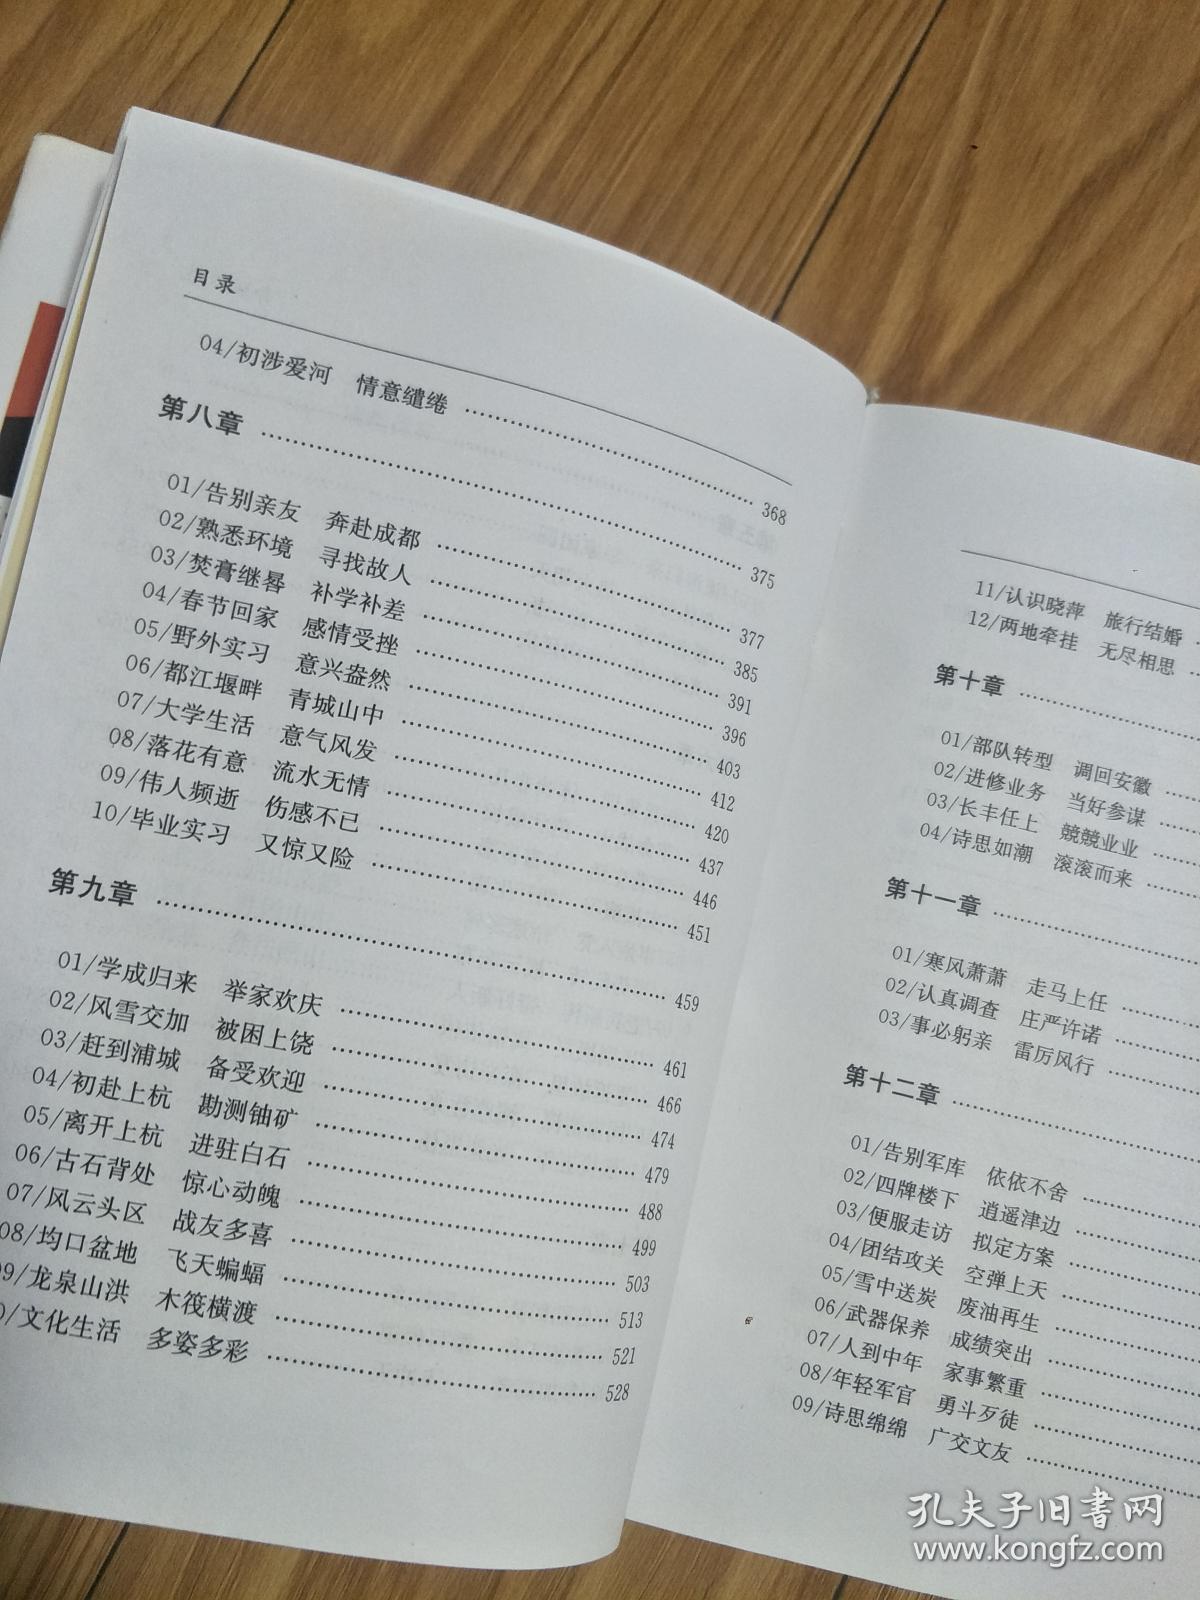 目录
04/初涉爱河 情意缱绻 368
第八章 375
01/告别亲友 奔赴成都 377
02/熟悉环境 寻找故人 385
03/焚膏继晷 补学补差 391
04/春节回家 感情受挫 396
05/野外实习 意兴盎然 403
06/都江堰畔 青城山中 412
07/大学生活 意气风发 420
08/落花有意 流水无情 437
09/伟人频逝 伤感不已 446
10/毕业实习 又惊又险 451
第九章 459
01/学成归来 举家欢庆 461
02/风雪交加 被困上饶 466
03/赶到浦城 备受欢迎 474
04/初赴上杭 勘测铀矿 479
05/离开上杭 进驻白石 488
06/古石背处 惊心动魄 499
07/风云头区 战友多喜 503
08/均口盆地 飞天蝙蝠 513
09/龙泉山洪 木筏横渡 521
0/文化生活 多姿多彩 528
11/认识晓萍 旅行结婚
12/两地牵挂 无尽相思
第十章
01/部队转型 调回安徽
02/进修业务 当好参谋
03/长丰任上 兢兢业业
04/诗思如潮 滚滚而来
第十一章
01/寒风萧萧 走马上任
02/认真调查 庄严许诺
03/事必躬亲 雷厉风行
第十二章
01/告别军库 依依不舍
02/四牌楼下 逍遥津边
03/便服走访 拟定方案
04/团结攻关 空弹上天
05/雪中送炭 废油再生
06/武器保养 成绩突出
07/人到中年 家事繁重
08/年轻军官 勇斗歹徒
09/诗思绵绵 广交文友
孔夫子旧书网
www.kongfz.com